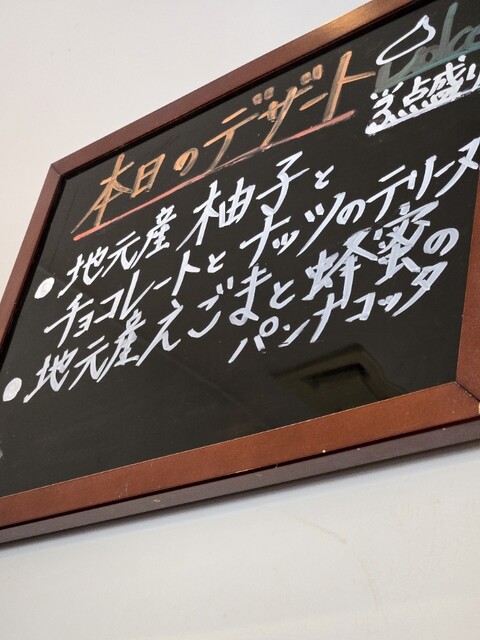 本日のデザート
3点盛り
• 地元産 柚子と
チョコレートとナッツのテリーヌ
• 地元産えごまと蜂蜜の
パンナコッタ